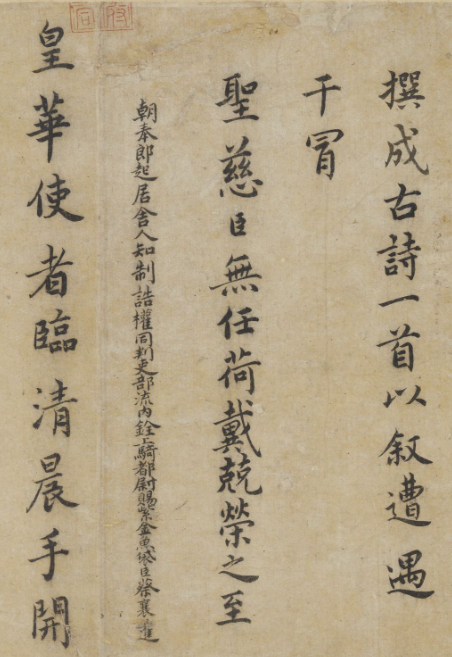 撰成古詩一首以敘遭遇
干冒
聖慈臣無任荷戴兢榮之至
朝奉郎起居舍人知制誥權同判吏部流內銓上騎都尉賜紫金魚袋臣蔡襄上進
皇華使者臨清晨手開